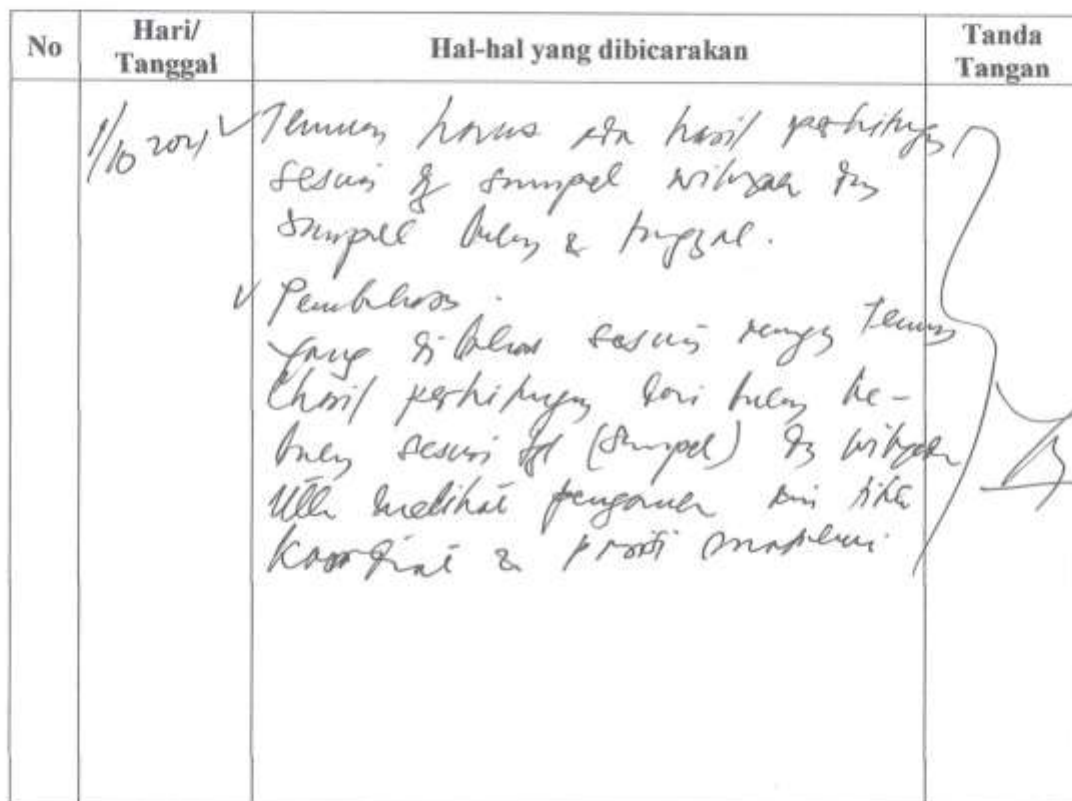 No
Hari/
Tanggal
Hal-hal yang dibicarakan
Tanda
Tangan
1/10 2021
✓ Temuan harus ada hasil perhitungan
sesuai dg sampel wilayah dan
sampel bulan & tanggal.
✓ Pembahasan.
yang di bahas sesuai dengan Temuan
(hasil perhitungan dari bulan ke-
bulan sesuai tgl (sampel) dan wilayah
melihat pengamat dari
koordinat &